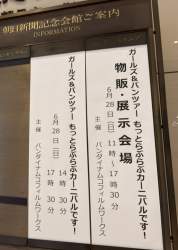 朝日新聞記念会館ご案内
INFORMATION
ガールズ&パンツァー もっとらぶらぶカーニバルです!
物販・展示会場
6月28日(日) 11時〜17時30分
主催 バンダイナムコフィルムワークス
ガールズ&パンツァー もっとらぶらぶカーニバルです!
6月28日(日) 14時30分
17時30分
主催 バンダイナムコフィルムワークス